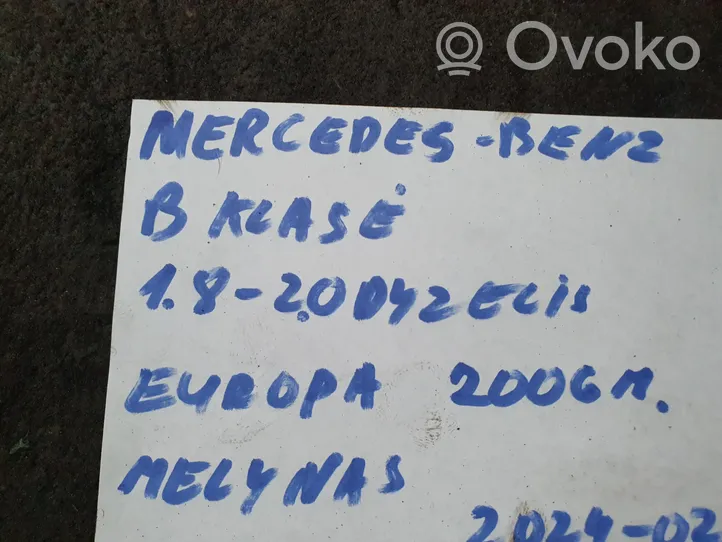 Ovoko
MERCEDES-BENZ
B KLASĖ
1.8-2.0 DYZELIS
EUROPA 2006M.
MELYNAS
2024-02